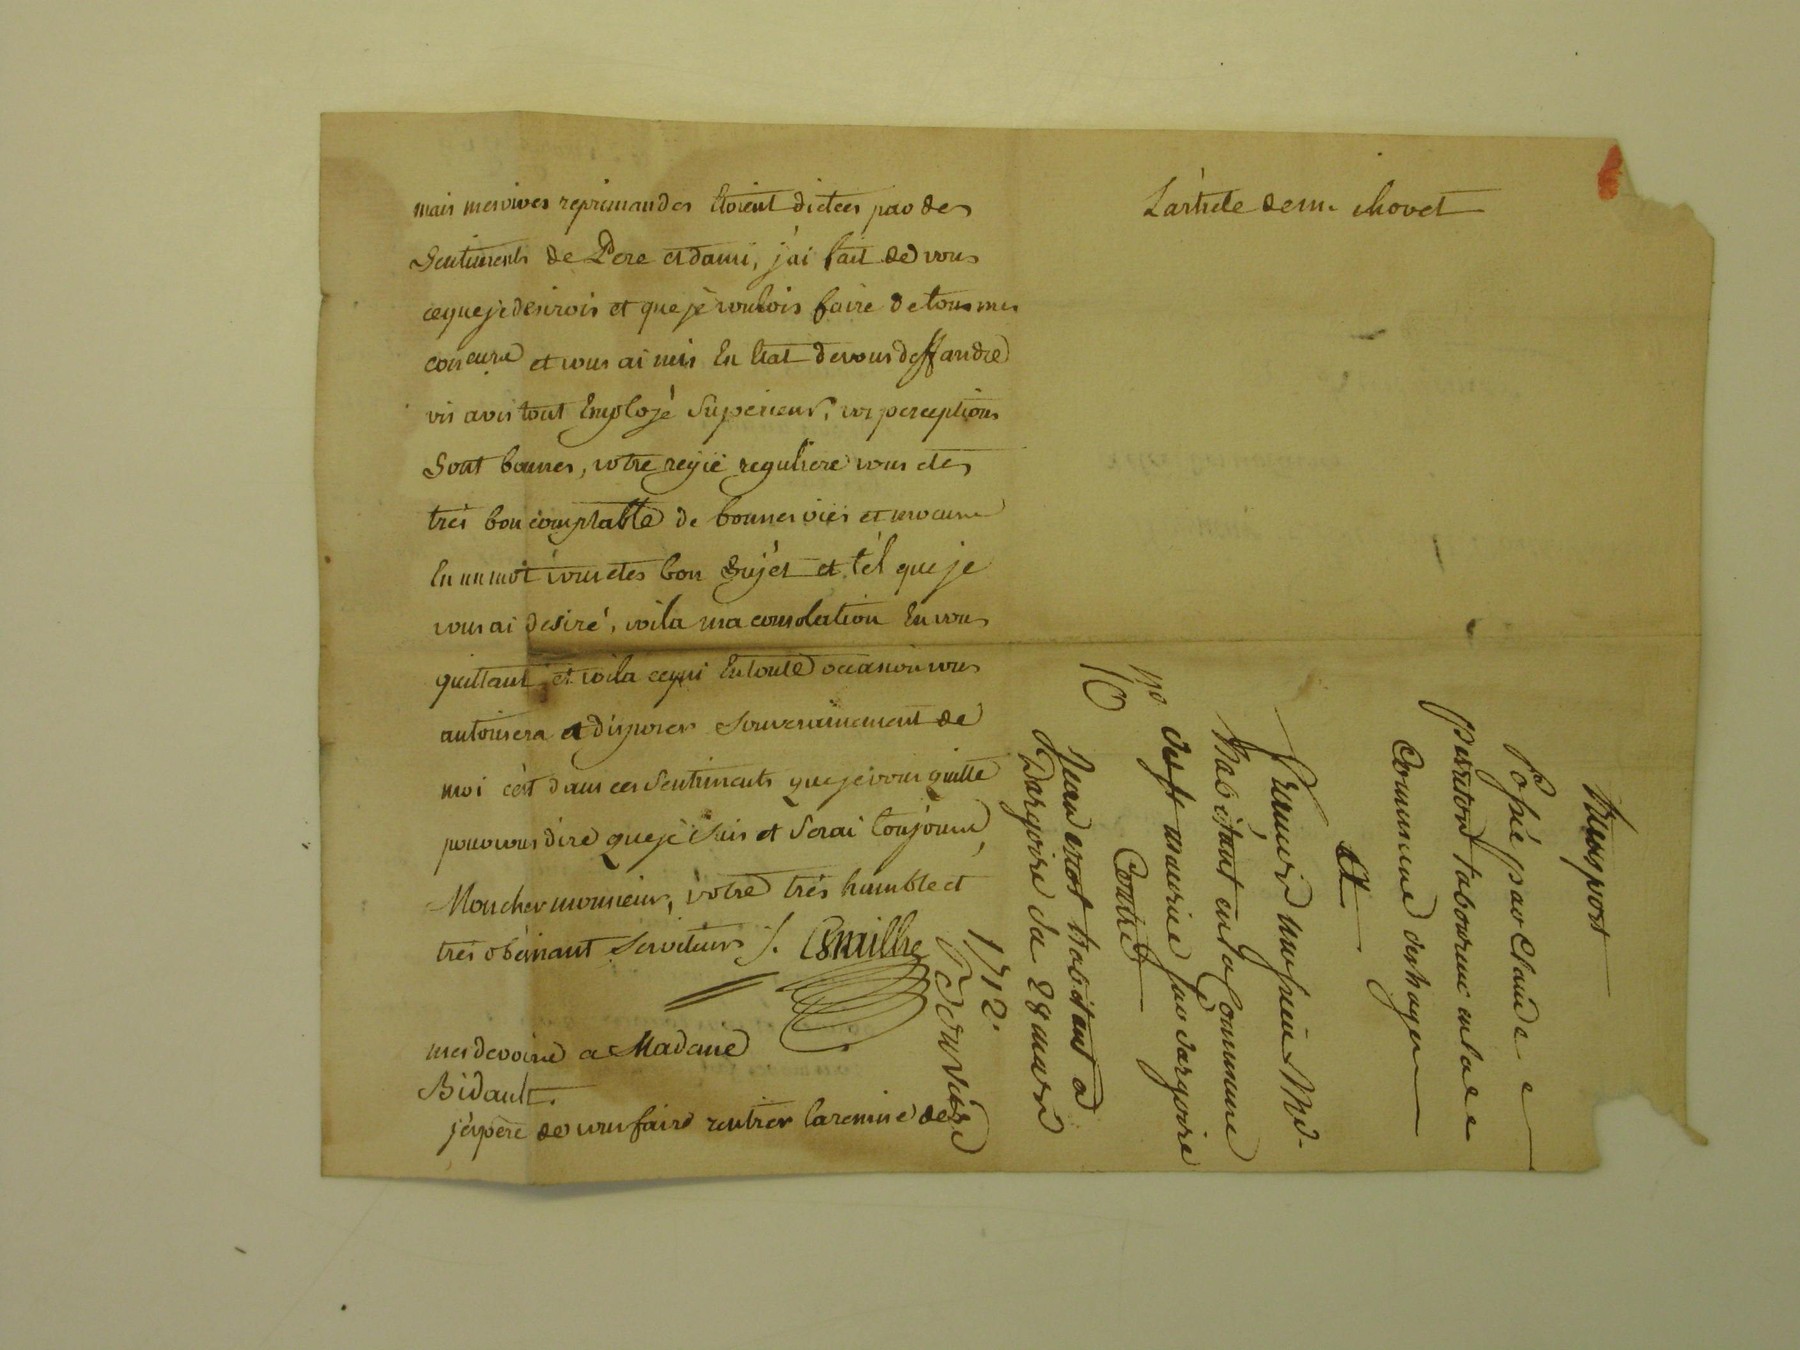 mais mes vives reprimandes Etoient dictées par des
Sentiments de Pere et dami, j'ai fait de vous
ceque je desirois et que je voulois faire de tous mes
et vous ai mis En Etat de vous deffandre
vis avis tout Employé Superieur, vos perceptions
Sont bonnes, votre regie reguliere vous etes
très bon comptable de bonnes vies et
En un mot vous etes bon Sujet et tél que je
vous ai desiré, voila ma consolation En vous
quittant et voila cequi En toute occasion vous
autorisera a disposer Souverainement de
moi c'est dans ces Sentiments que je vous quitte
pour vous dire que je Suis et Serai toujours,
Mon cher monsieur, votre très humble et
très obeissant Serviteur /.
mes devoirs a Madame
Bidault.
j'éspere de vous faire rentrer la remise de
L'article de mr. chovet
Raport
pausié par Claude
laboureur en la
Commune deshayes
Et
habitant en la Commune
de st maurice sur dargoire
Contre
Jean habitant a
Dargoire du 28 mars
1712.